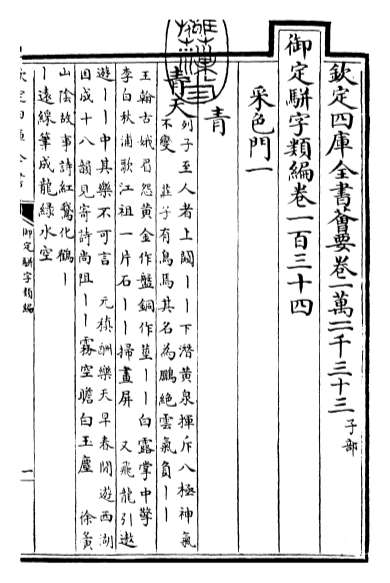 欽定四庫全書薈要卷一萬二千三十三 子部
御定駢字類編卷一百三十四
采色門一
青
青天
列子至人者上闚丨丨下潛黃泉揮斥八極神氣
不變 莊子有鳥焉其名為鵬絕雲氣負丨丨
王翰古娥眉怨黃金作盤銅作莖丨丨白露掌中擎
李白秋浦歌江祖一片石丨丨掃畫屏 又飛龍引遨
遊丨丨中其樂不可言 元稹酬樂天早春閒遊西湖
因成十八韻見寄詩尚阻丨丨霧空瞻白玉塵 徐夤
山陰故事詩紅鵞化鶴丨
丨遠線筆成龍綠水空
欽定四庫全書
御定駢字類編
一